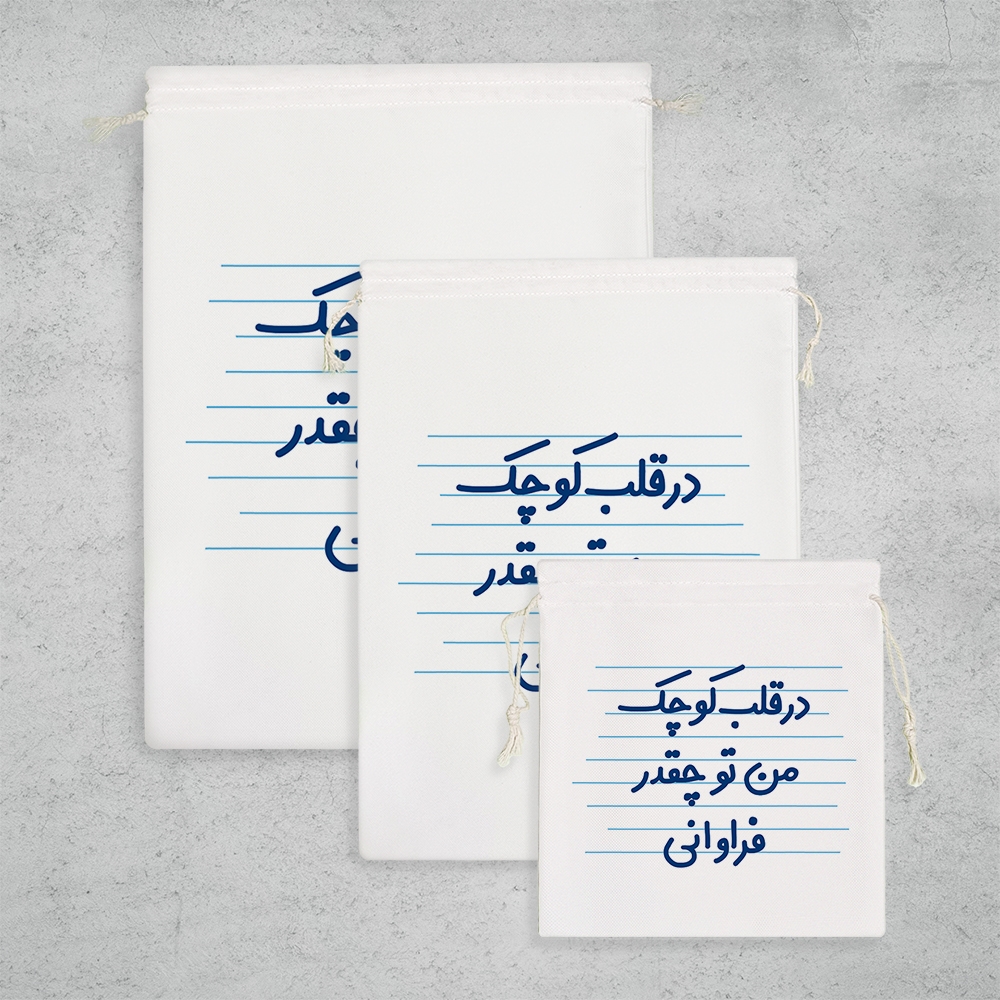 چک
چقدر
ن
در قلب کوچک
تو چقدر
ن
در قلب کوچک
من تو چقدر
فراوانی